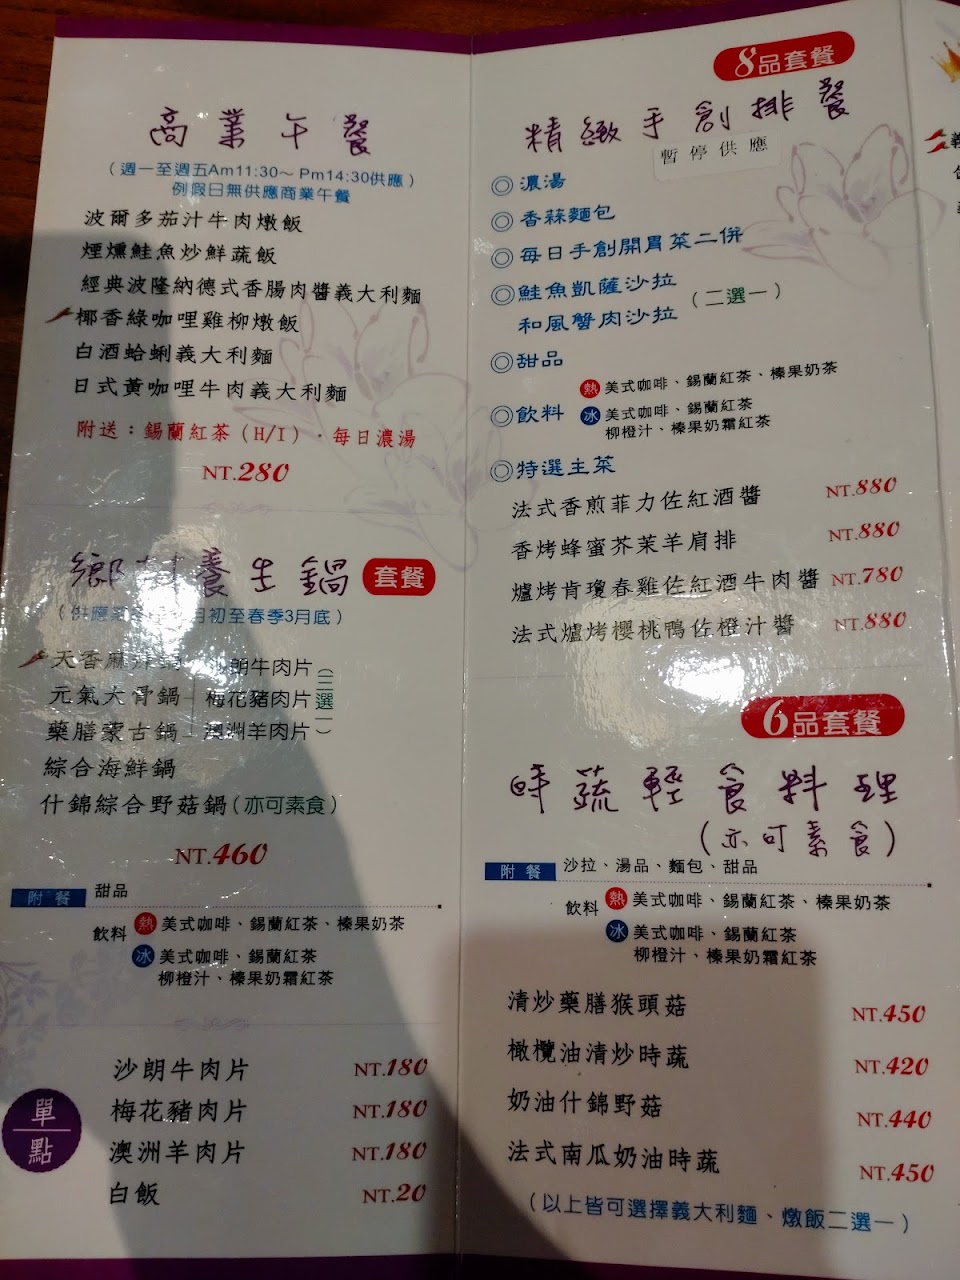 商業午餐
（週一至週五Am11:30～Pm14:30供應）
例假日無供應商業午餐
波爾多茄汁牛肉燉飯
煙燻鮭魚炒鮮蔬飯
經典波隆納德式香腸肉醬義大利麵
椰香綠咖哩雞柳燉飯
白酒蛤蜊義大利麵
日式黃咖哩牛肉義大利麵
附送：錫蘭紅茶（H/I）．每日濃湯
NT.280
鄉村養生鍋 套餐
（供應 月初至春季3月底）
天香麻辣鍋 沙朗牛肉片
元氣大骨鍋 梅花豬肉片
藥膳蒙古鍋 澳洲羊肉片
（三選一）
綜合海鮮鍋
什錦綜合野菇鍋（亦可素食）
NT.460
附餐 甜品
飲料 熱 美式咖啡、錫蘭紅茶、榛果奶茶
冰 美式咖啡、錫蘭紅茶
柳橙汁、榛果奶霜紅茶
單點
沙朗牛肉片 NT.180
梅花豬肉片 NT.180
澳洲羊肉片 NT.180
白飯 NT.20
8品套餐
精緻手創排餐
暫停供應
◎濃湯
◎香蒜麵包
◎每日手創開胃菜二併
◎鮭魚凱薩沙拉
和風蟹肉沙拉
（二選一）
◎甜品
◎飲料 熱 美式咖啡、錫蘭紅茶、榛果奶茶
冰 美式咖啡、錫蘭紅茶
柳橙汁、榛果奶霜紅茶
◎特選主菜
法式香煎菲力佐紅酒醬 NT.880
香烤蜂蜜芥茉羊肩排 NT.880
爐烤肯瓊春雞佐紅酒牛肉醬 NT.780
法式爐烤櫻桃鴨佐橙汁醬 NT.880
6品套餐
時蔬輕食料理
（亦可素食）
附餐 沙拉、湯品、麵包、甜品
飲料 熱 美式咖啡、錫蘭紅茶、榛果奶茶
冰 美式咖啡、錫蘭紅茶
柳橙汁、榛果奶霜紅茶
清炒藥膳猴頭菇 NT.450
橄欖油清炒時蔬 NT.420
奶油什錦野菇 NT.440
法式南瓜奶油時蔬 NT.450
（以上皆可選擇義大利麵、燉飯二選一）